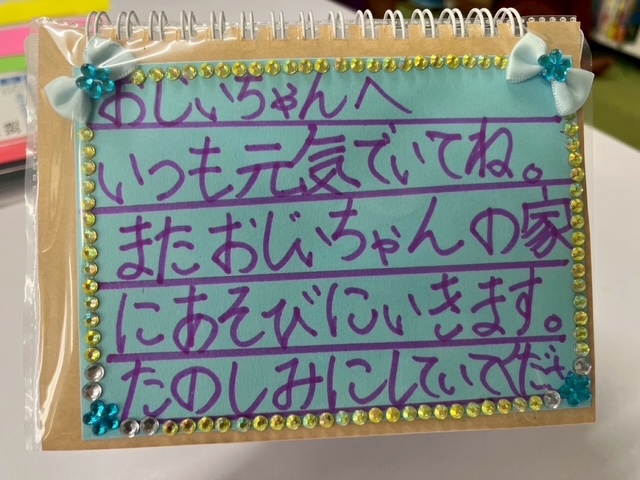 おじぃちゃんへ
いつも元気でいてね。
またおじぃちゃんの家
にあそびにいきます。
たのしみにしていてくださ